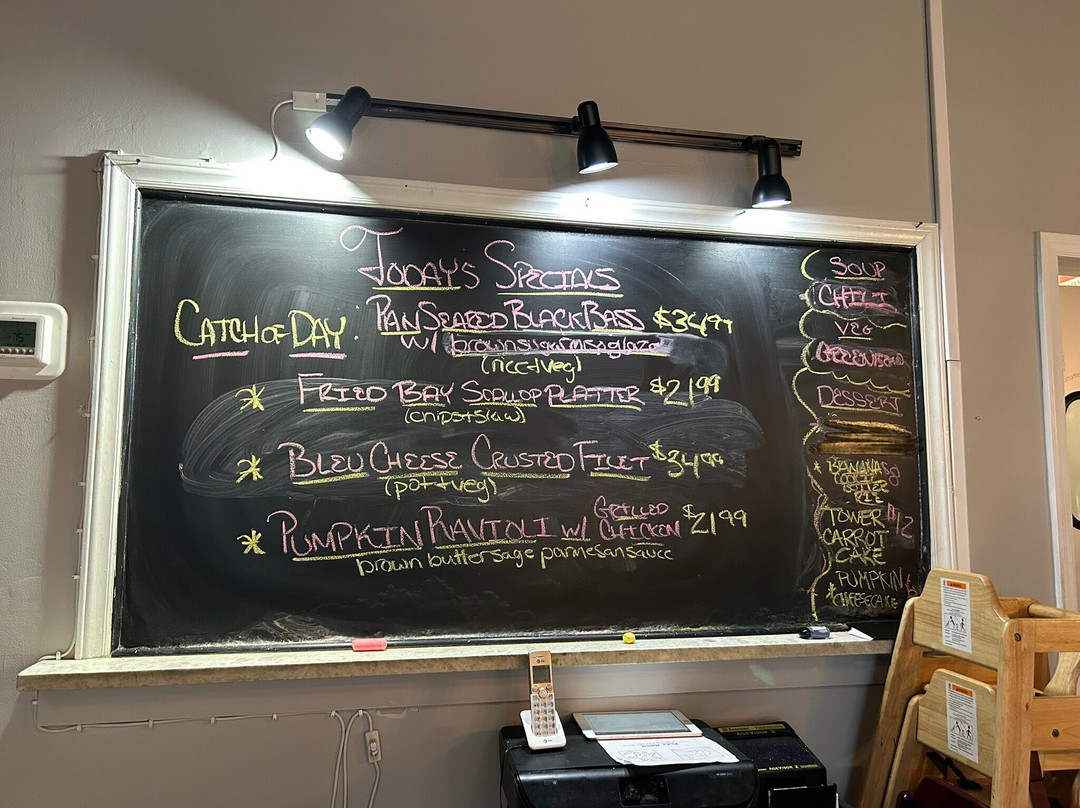 TODAY'S SPECIALS
CATCH OF DAY: PAN SEARED BLACK BASS $34.99
w/ brown sugar miso glaze
(rice+veg)
* FRIED BAY SCALLOP PLATTER $21.99
(chips+slaw)
* BLEU CHEESE CRUSTED FILET $34.99
(pot+veg)
* PUMPKIN RAVIOLI w/ GRILLED CHICKEN $21.99
brown butter sage parmesan sauce
SOUP
CHILI
VEG
DESSERT
* BANANA
TOWER $12
CARROT
CAKE
* PUMPKIN
CHEESECAKE